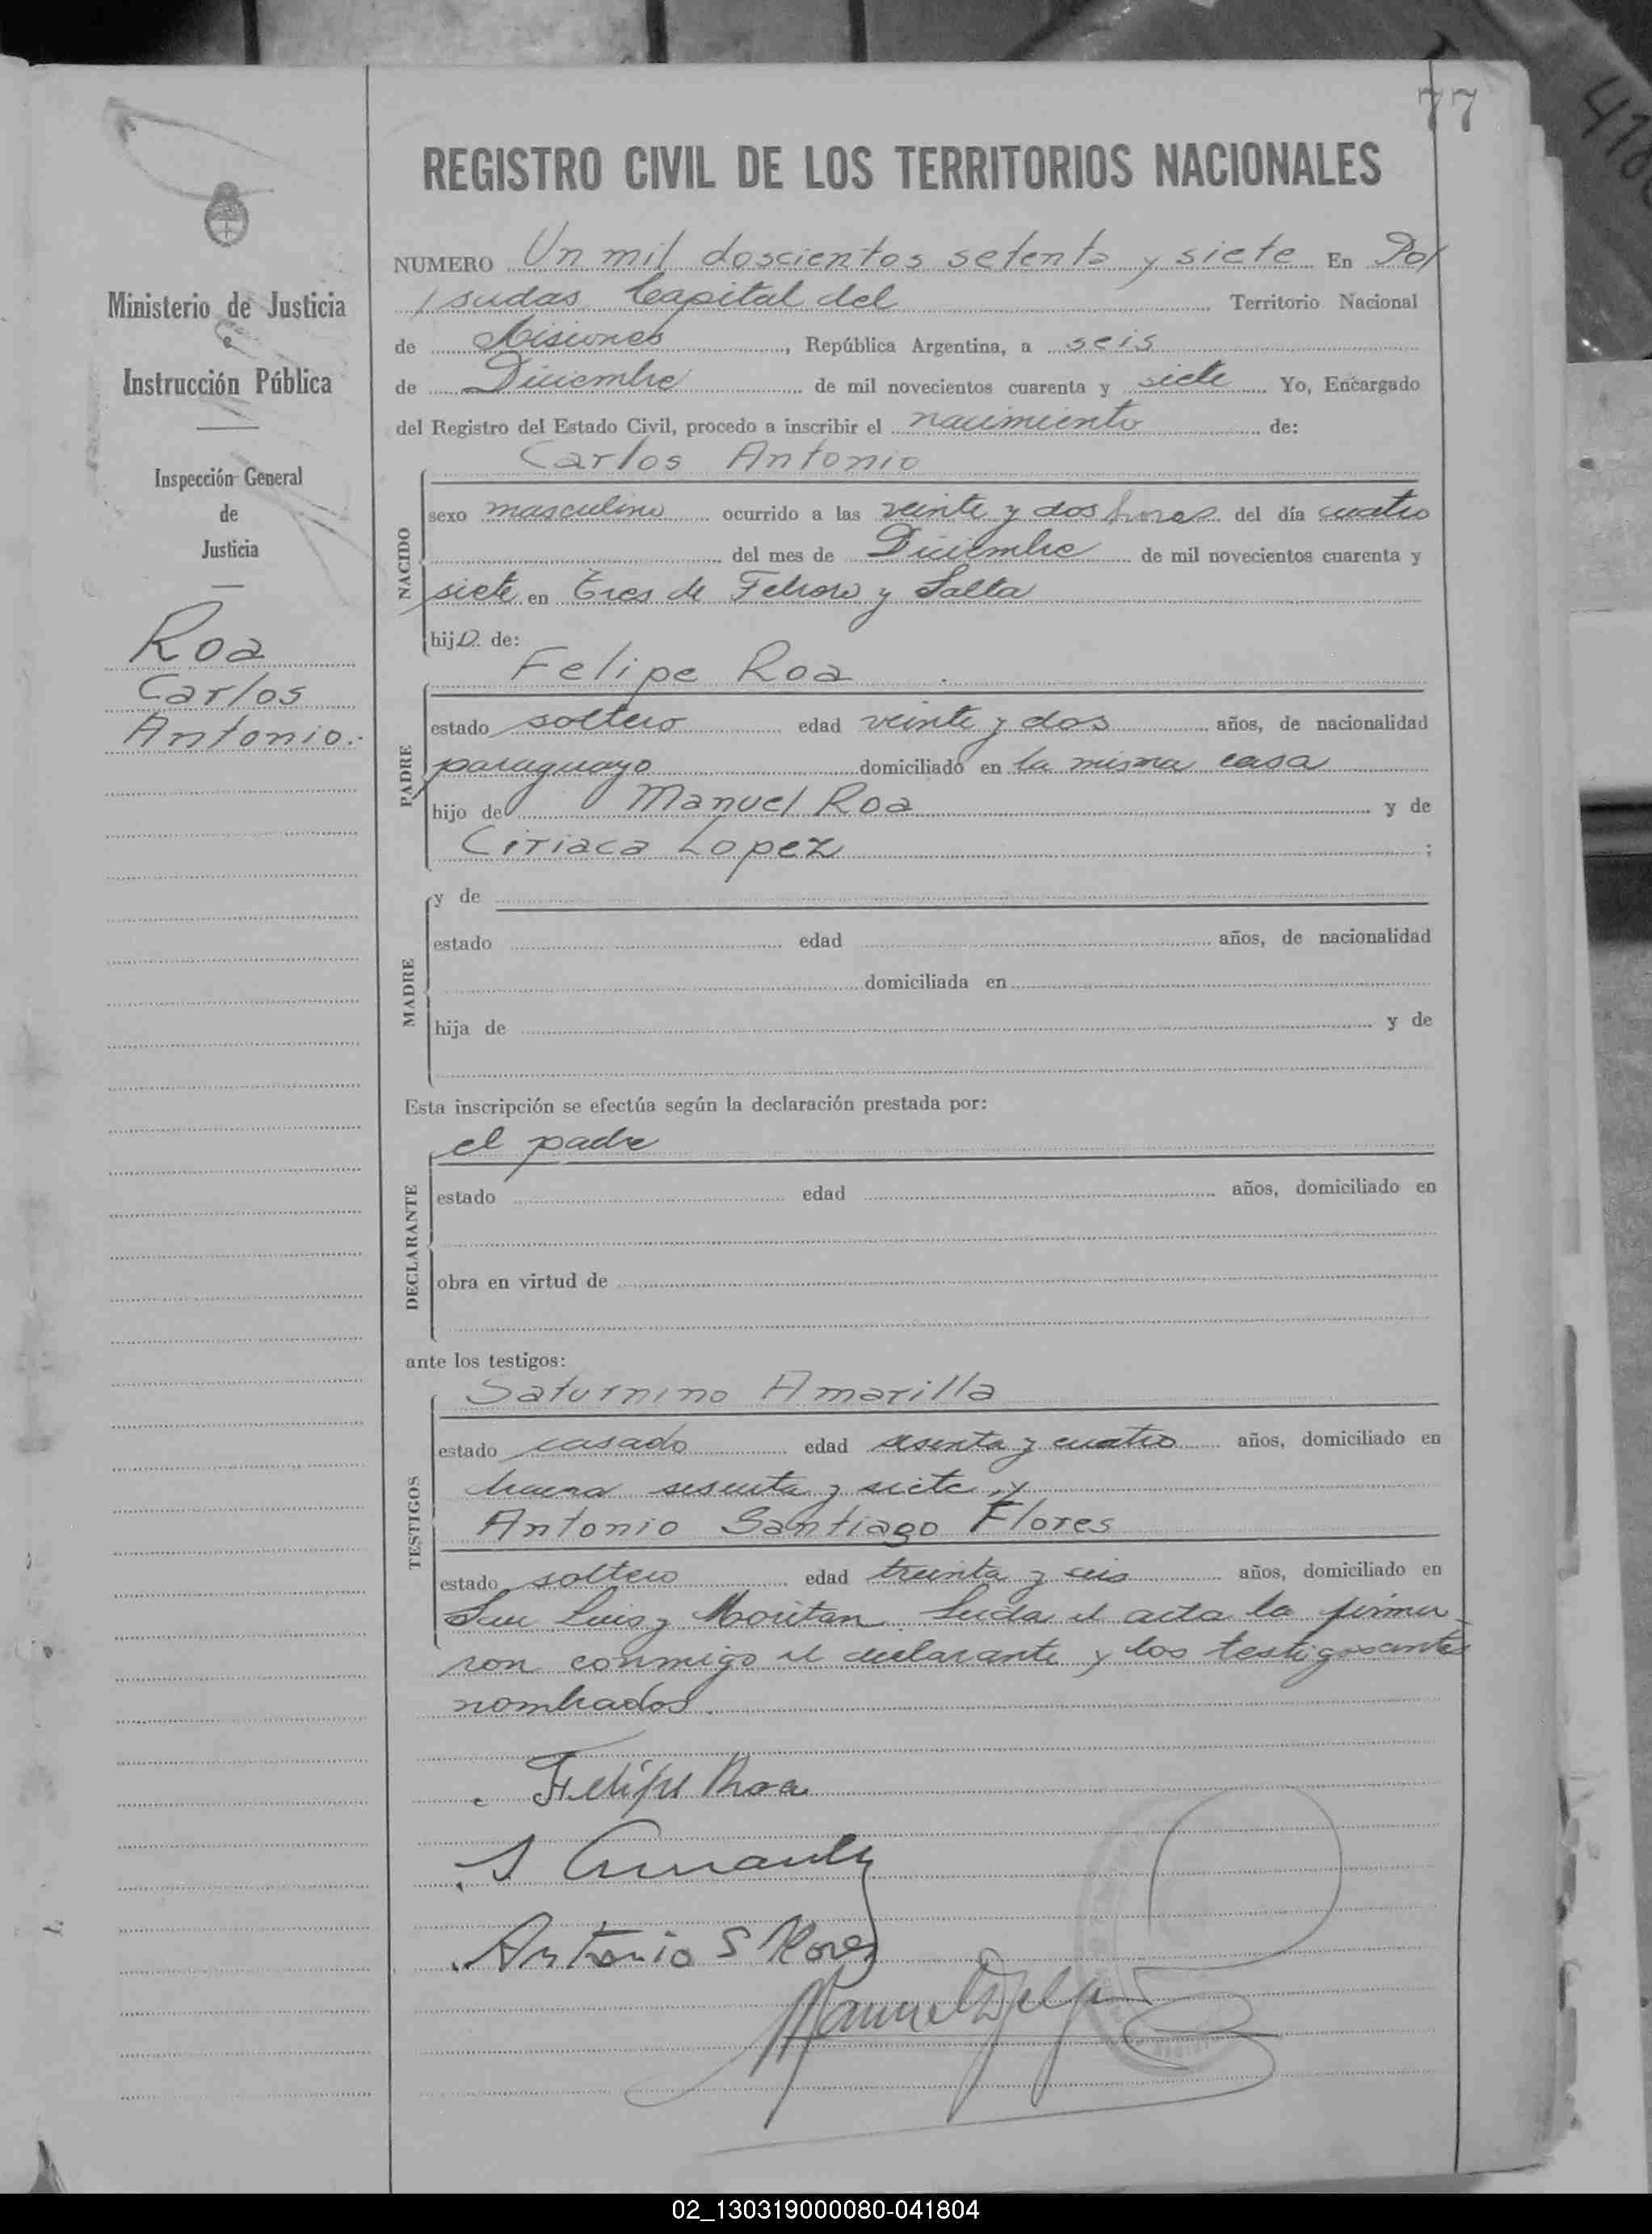 77
REGISTRO CIVIL DE LOS TERRITORIOS NACIONALES
NUMERO Un mil doscientos setenta y siete En Po/
/sadas Capital del Territorio Nacional
de Misiones, República Argentina, a seis
de Diciembre de mil novecientos cuarenta y siete Yo, Encargado
del Registro del Estado Civil, procedo a inscribir el nacimiento de:
Ministerio de Justicia
e
Instrucción Pública
Inspección General
de
Justicia
Roa
Carlos
Antonio.-
NACIDO
Carlos Antonio
sexo masculino ocurrido a las veinte y dos horas del día cuatro
del mes de Diciembre de mil novecientos cuarenta y
siete en Tres de Febrero y Salta
hijo de:
PADRE
Felipe Roa
estado soltero edad veinte y dos años, de nacionalidad
paraguayo domiciliado en la misma casa
hijo de Manuel Roa y de
Ciriaca Lopez ;
MADRE
y de
estado edad años, de nacionalidad
domiciliada en
hija de y de
Esta inscripción se efectúa según la declaración prestada por:
DECLARANTE
el padre
estado edad años, domiciliado en
obra en virtud de
ante los testigos:
TESTIGOS
Saturnino Amarilla
estado casado edad sesenta y cuatro años, domiciliado en
sesenta y siete y
Antonio Santiago Flores
estado soltero edad treinta y seis años, domiciliado en
San Luis y Moritan. Leida el acta la firma-
ron conmigo el declarante y los testigos antes
nombrados.
Felipe Roa
S Amarilla
Antonio S Flores
Manuel
02_130319000080-041804